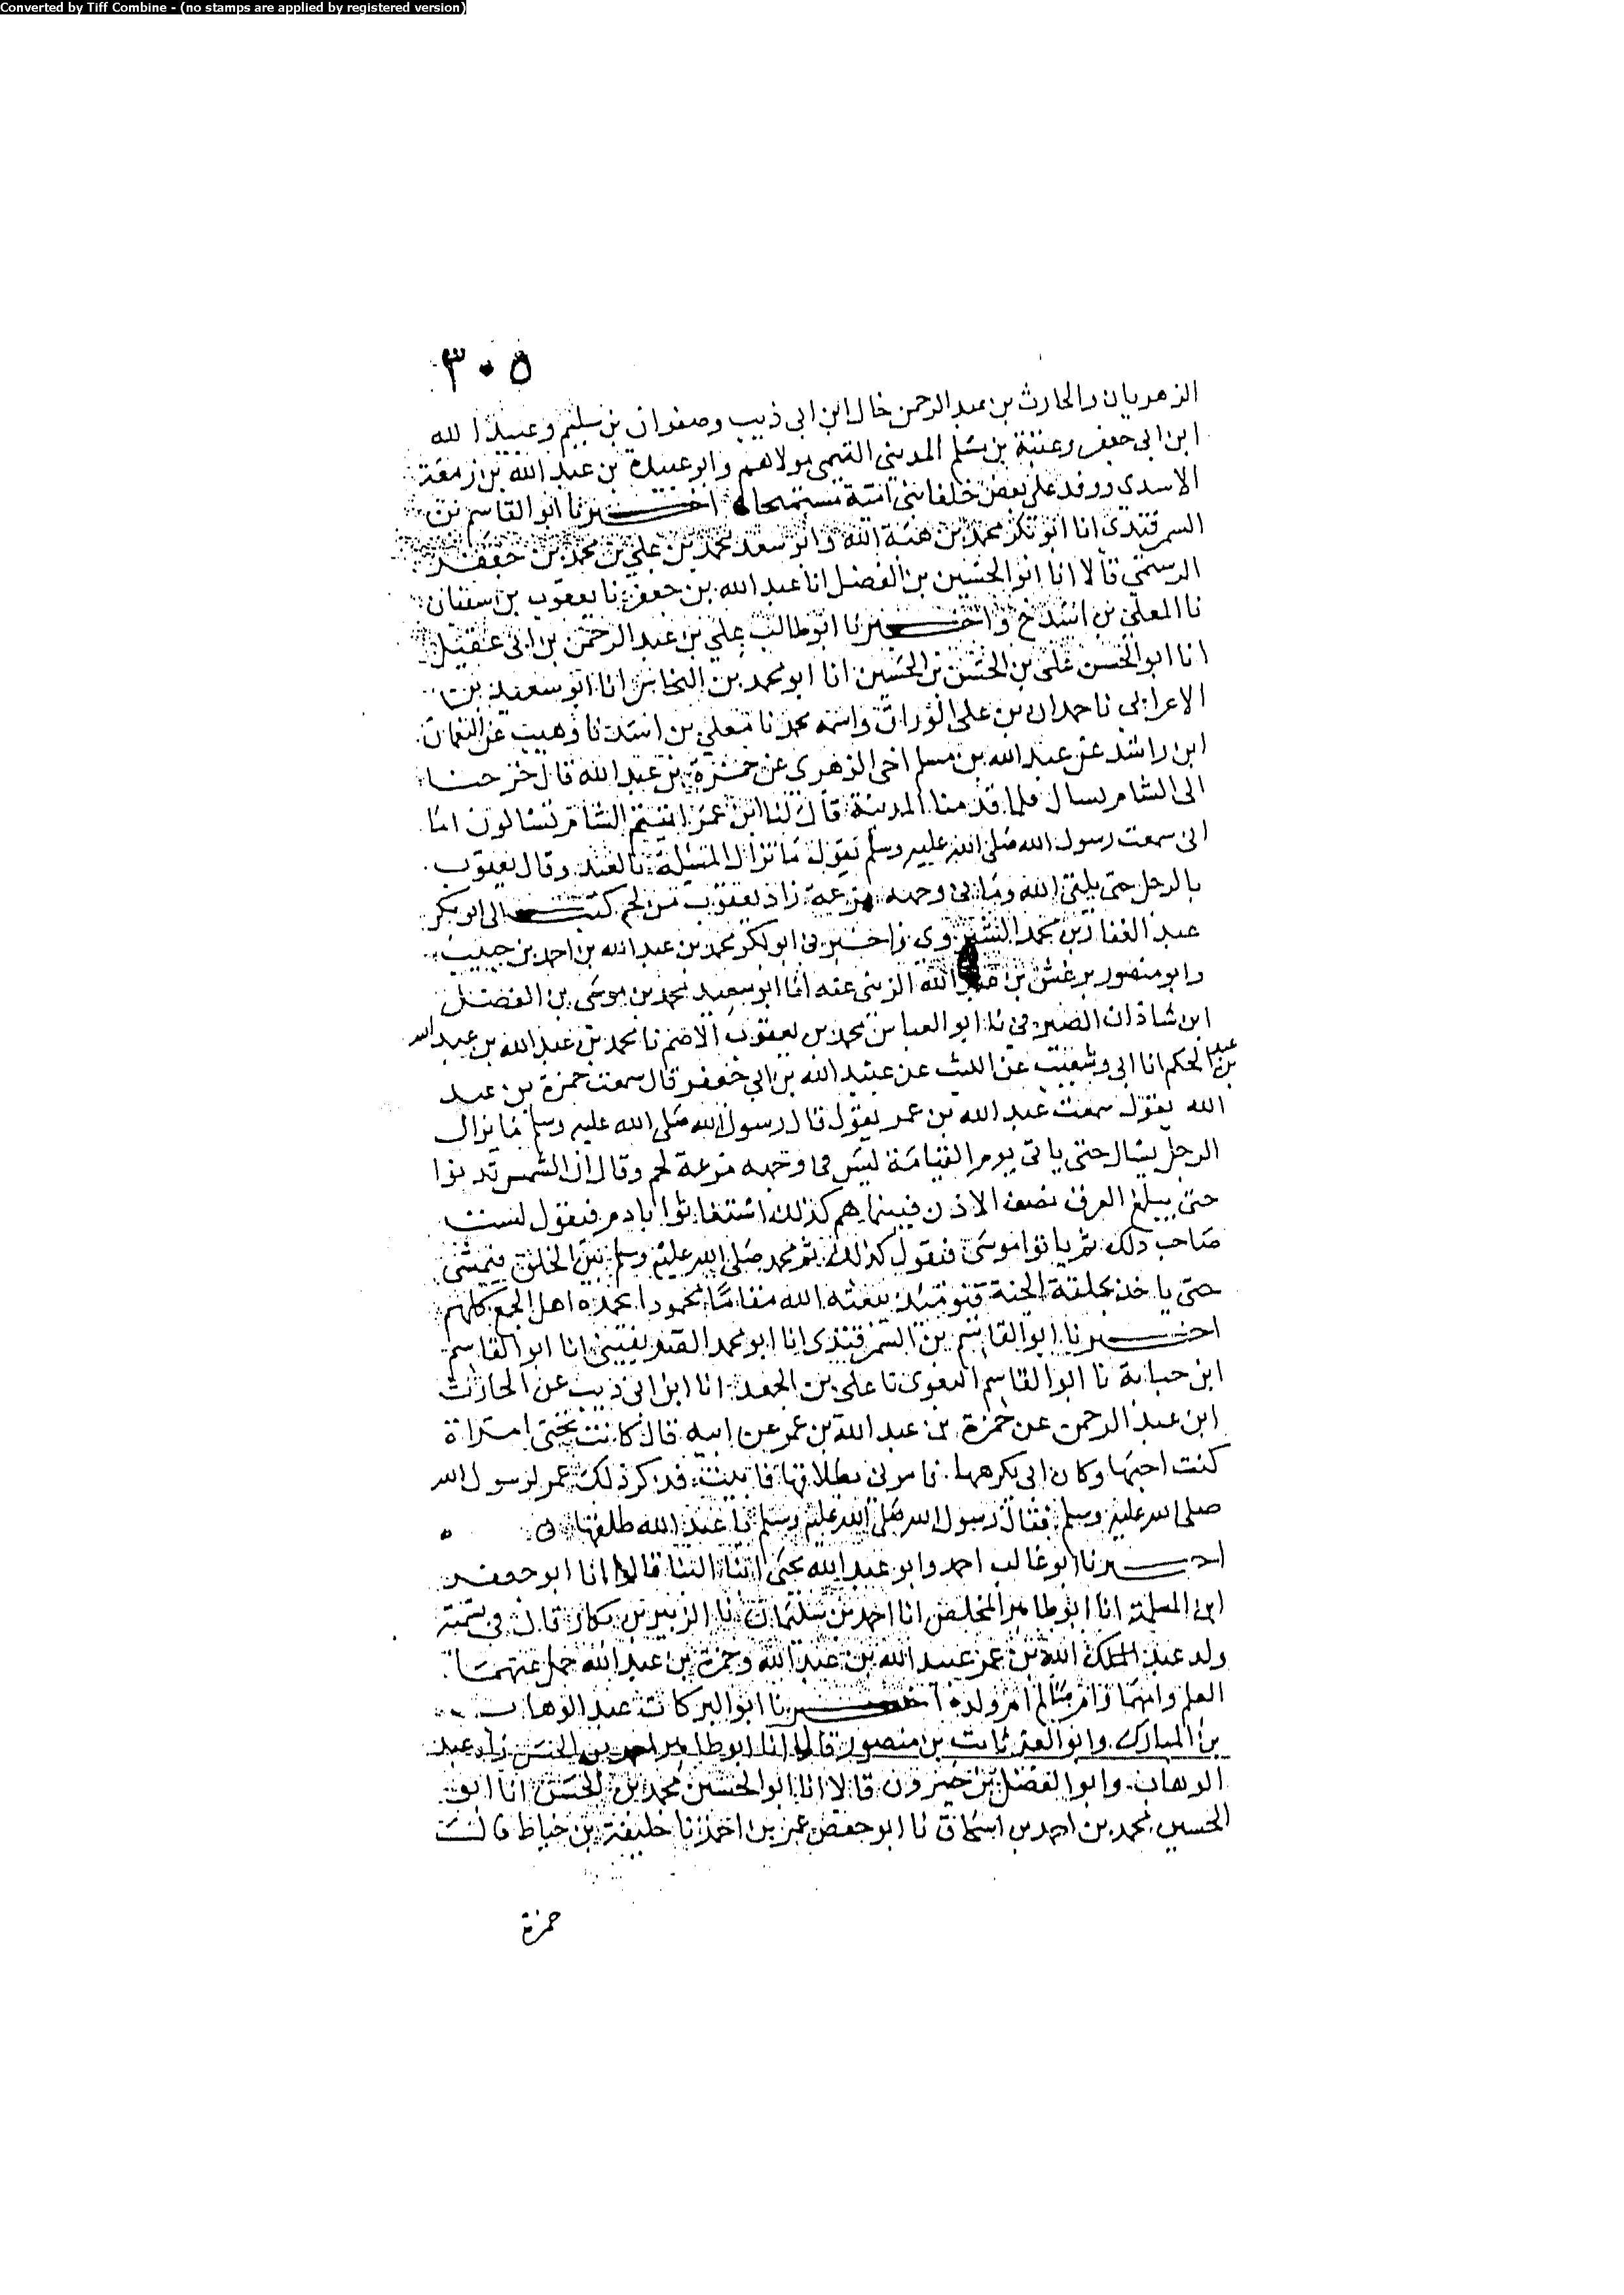 Converted by Tiff Combine - (no stamps are applied by registered version)
٣٠٥
الزهريان والحارث بن عبد الرحمن خال ابن ابي ذيب وصفوان بن سليم وعبيد الله
ابن ابي جعفر وعتبة بن مسلم المديني التيمي مولاهم وابو عبيدة بن عبد الله بن زمعة
الاسدي ووفد على بعض خلفا بني امية اخبرنا ابو القاسم بن
السمرقندي انا ابو بكر محمد بن هبة الله وابو سعد محمد بن علي بن محمد بن جعفر
الرستمي قالا انا ابو الحسين بن الفضل انا عبد الله بن جعفر نا يعقوب بن سفيان
نا المعلى بن اسد ح واخبرنا ابو طالب علي بن عبد الرحمن بن ابي عقيل
انا ابو الحسن علي بن الحسن بن الحسين انا ابو محمد بن النحاس انا ابو سعيد بن
الاعرابي نا حمدان بن علي الوراق واسمه محمد نا معلى بن اسد نا وهيب عن النعمان
ابن راشد عن عبد الله بن مسلم اخي الزهري عن حمزة بن عبد الله قال خرجنا
الى الشام نسال فلما قدمنا المدينة قال لنا ابن عمر اتيتم الشام تسالون اما
اني سمعت رسول الله صلى الله عليه وسلم يقول ما تزال المسئلة بالعبد وقال يعقوب
بالرجل حتى يلقى الله وما في وجهه مزعة زاد يعقوب من لحم كتب الى ابو بكر
عبد الغفار بن محمد الشيروي واخبرني ابو بكر محمد بن عبد الله بن احمد بن حبيب
وابو منصور برغش بن عبد الله الزيني عنه انا ابو سعيد محمد بن موسى بن الفضل
ابن شاذان الصيرفي نا ابو العباس محمد بن يعقوب الاصم نا محمد بن عبد الله بن عبد الله
بن عبد الحكم انا ابي وشعيب عن الليث عن عبيد الله بن ابي جعفر قال سمعت حمزة بن عبد
الله يقول سمعت عبد الله بن عمر يقول قال رسول الله صلى الله عليه وسلم ما يزال
الرجل يسال حتى ياتي يوم القيامة ليس في وجهه مزعة لحم وقال ان الشمس تدنوا
حتى يبلغ العرق نصف الاذن فبينما هم كذلك استغاثوا بادم فيقول لست
صاحب ذلك ثم ياتوا موسى فيقول كذلك ثم محمد صلى الله عليه وسلم بين الخلق فيمشي
حتى ياخذ بحلقة الجنة فيومئذ يبعثه الله مقاما محمودا يحمده اهل الجمع كلهم
اخبرنا ابو القاسم بن السمرقندي انا ابو محمد الصريفيني انا ابو القاسم
ابن حبابة نا ابو القاسم البغوي نا علي بن الجعد انا ابن ابي ذيب عن الحارث
ابن عبد الرحمن عن حمزة بن عبد الله بن عمر عن ابيه قال كانت تحتي امراة
كنت احبها وكان ابي يكرهها فامرني بطلاقها فابيت فذكر ذلك عمر لرسول الله
صلى الله عليه وسلم فقال رسول الله صلى الله عليه وسلم يا عبد الله طلقها
اخبرنا ابو غالب احمد وابو عبد الله يحيى ابنا البنا قالا انا ابو جعفر
ابن المسلمة انا ابو طاهر المخلص انا احمد بن سليمان نا الزبير بن بكار قال في تسمية
ولد عبد الله بن عمر عبيد الله بن عبد الله وحمزة بن عبد الله حمل عنهما
العلم وامهما وام سالم ام ولد اخبرنا ابو البركات عبد الوهاب
بن المبارك وابو العز ثابت بن منصور قالا انا ابو طاهر احمد بن الحسن زاد عبد
الوهاب وابو الفضل بن خيرون قالا انا ابو الحسين محمد بن الحسن انا ابو
الحسين محمد بن احمد بن اسحاق نا ابو حفص عمر بن احمد نا خليفة بن خياط قال
حمزة